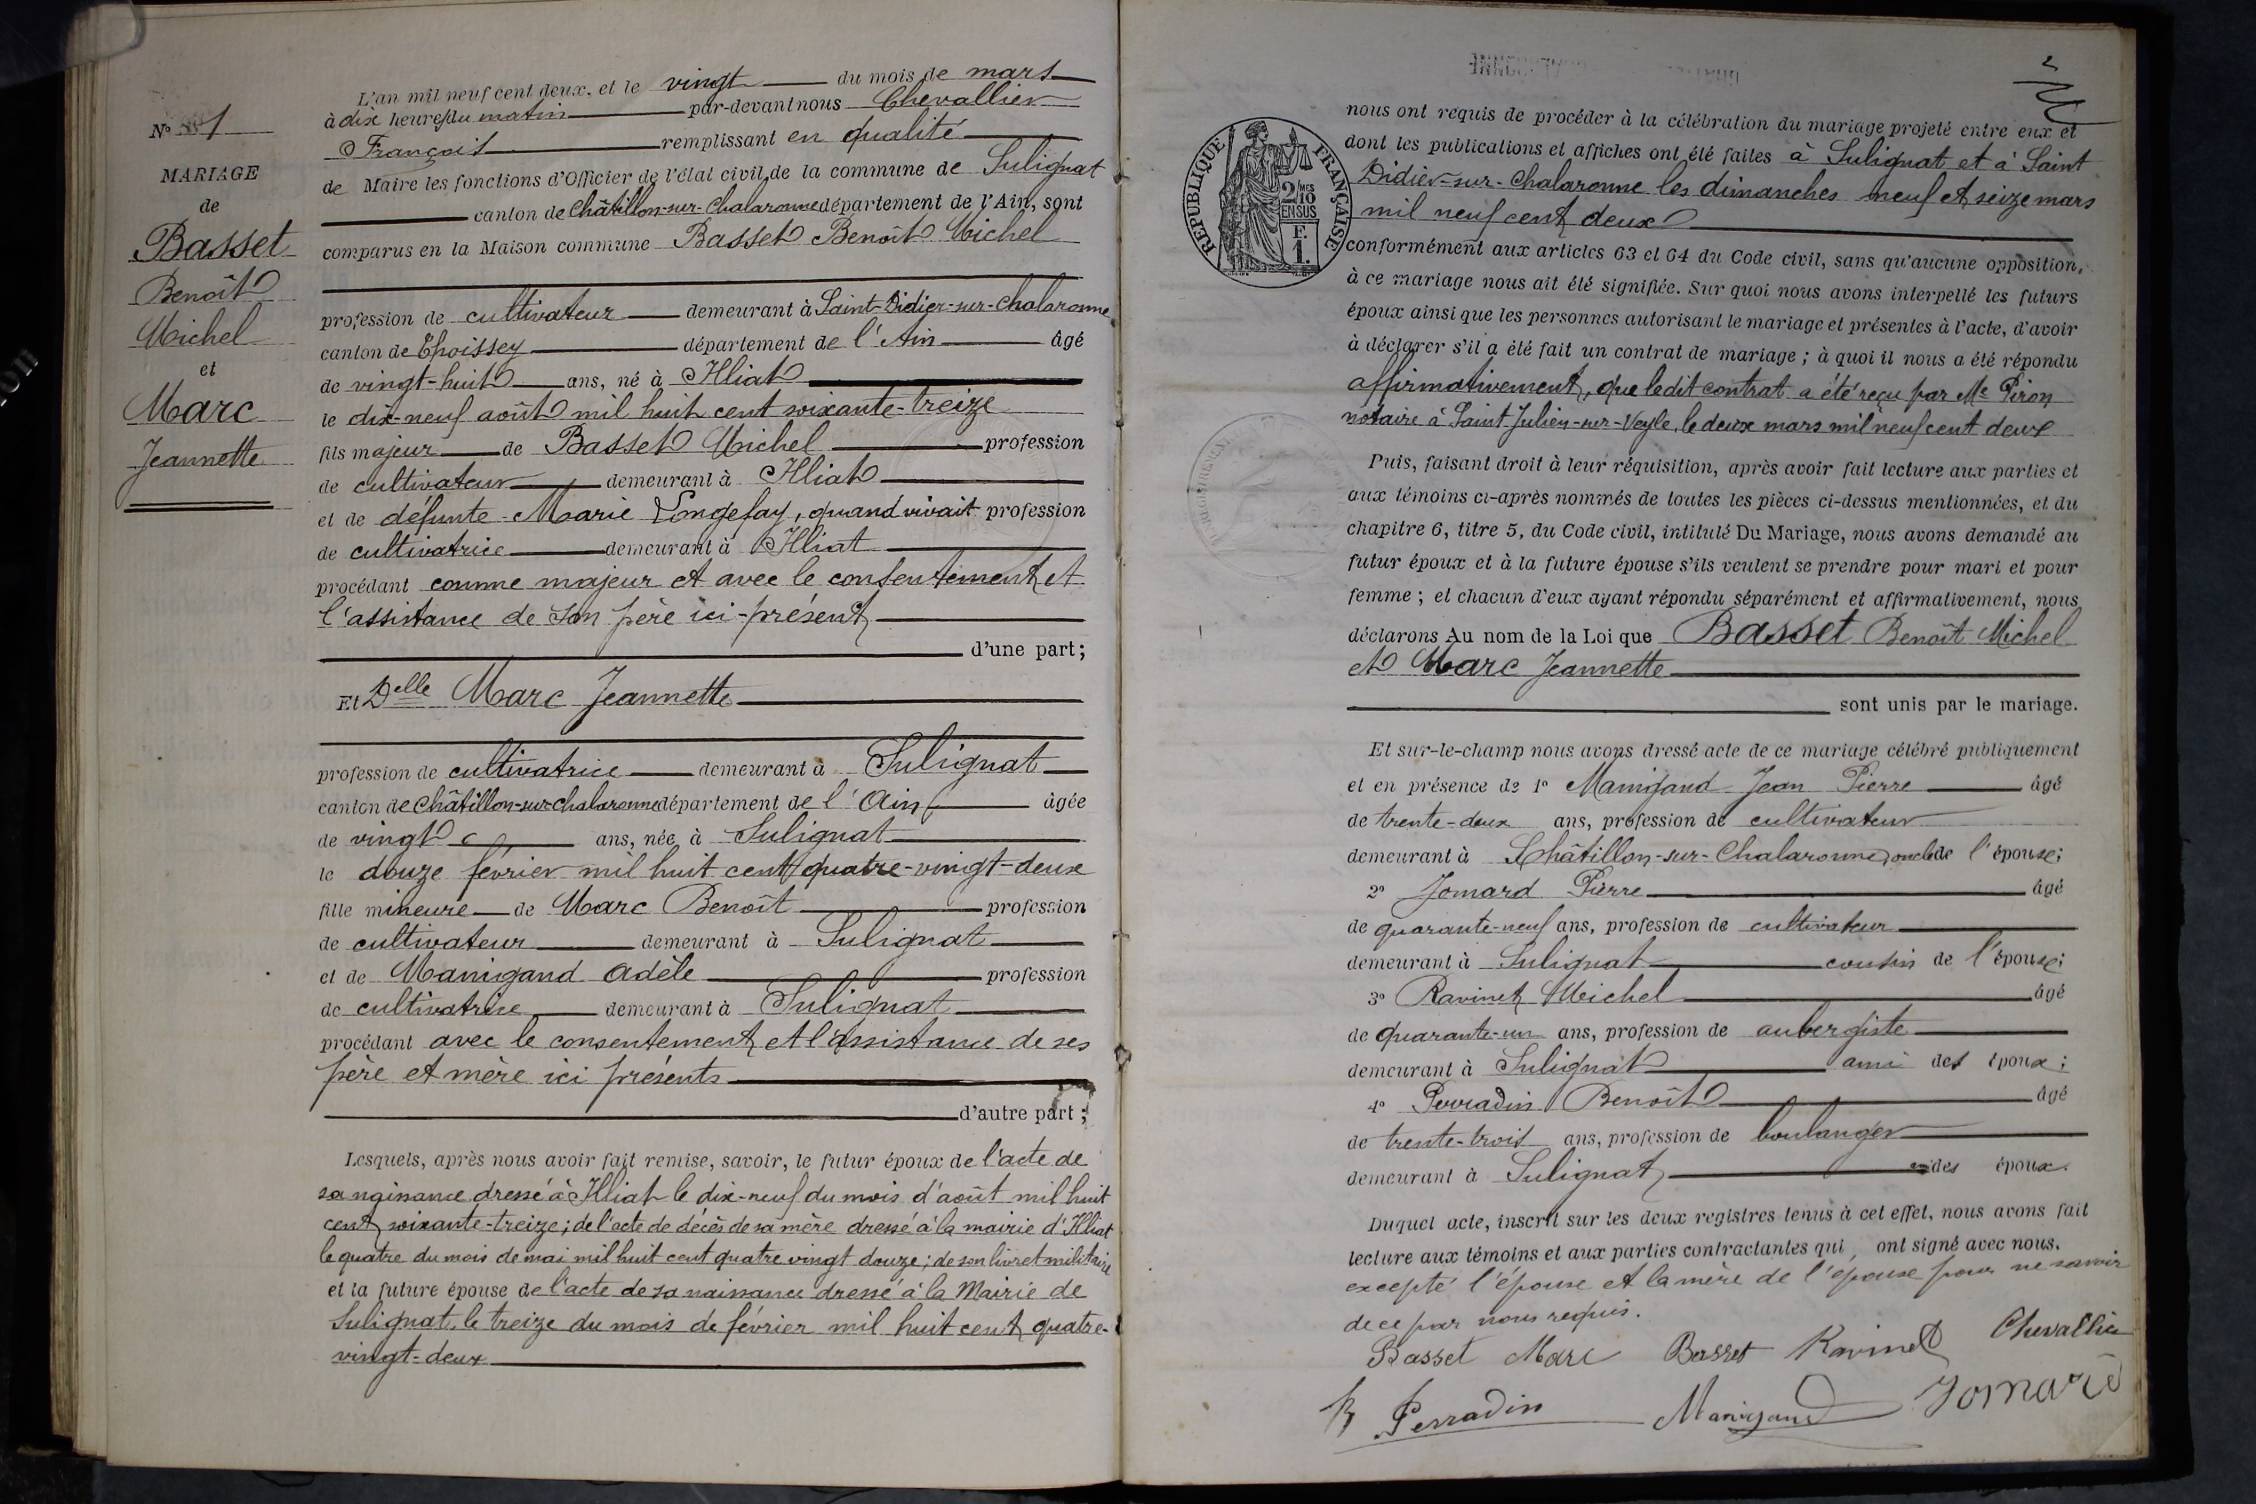 N° 1
MARIAGE
de
Basset
Benoît
Michel
et
Marc
Jeannette
L'an mil neuf cent deux, et le vingt du mois de mars
à dix heures du matin par-devant nous Chevallier
François remplissant en qualité
de Maire les fonctions d'Officier de l'état civil de la commune de Sulignat
canton de Châtillon-sur-Chalaronne département de l'Ain, sont
comparus en la Maison commune Basset Benoît Michel
profession de cultivateur demeurant à Saint-Didier-sur-Chalaronne
canton de Thoissey département de l'Ain âgé
de vingt-huit ans, né à Illiat
le dix-neuf août mil huit cent soixante-treize
fils majeur de Basset Michel profession
de cultivateur demeurant à Illiat
et de défunte Marie Longefay, quand vivait profession
de cultivatrice demeurant à Illiat
procédant comme majeur et avec le consentement et
l'assistance de son père ici-présent
d'une part;
Et Delle Marc Jeannette
profession de cultivatrice demeurant à Sulignat
canton de Châtillon-sur-Chalaronne département de l'Ain âgée
de vingt ans, née à Sulignat
le douze février mil huit cent quatre-vingt-deux
fille mineure de Marc Benoît profession
de cultivateur demeurant à Sulignat
et de Manigand Adèle profession
de cultivatrice demeurant à Sulignat
procédant avec le consentement et l'assistance de ses
père et mère ici présents
d'autre part;
Lesquels, après nous avoir fait remise, savoir, le futur époux de l'acte de
sa naissance dressé à Illiat le dix-neuf du mois d'août mil huit
cent soixante-treize; de l'acte de décès de sa mère dressé à la mairie d'Illiat
le quatre du mois de mai mil huit cent quatre vingt douze; de son livret militaire
et la future épouse de l'acte de sa naissance dressé à la Mairie de
Sulignat le treize du mois de février mil huit cent quatre-
vingt-deux
2
RÉPUBLIQUE FRANÇAISE
2/10 MES
EN SUS
F.
1.
nous ont requis de procéder à la célébration du mariage projeté entre eux et
dont les publications et affiches ont été faites à Sulignat et à Saint
Didier-sur-Chalaronne les dimanches neuf et seize mars
mil neuf cent deux
conformément aux articles 63 et 64 du Code civil, sans qu'aucune opposition,
à ce mariage nous ait été signifiée. Sur quoi nous avons interpellé les futurs
époux ainsi que les personnes autorisant le mariage et présentes à l'acte, d'avoir
à déclarer s'il a été fait un contrat de mariage; à quoi il nous a été répondu
affirmativement, que ledit contrat a été reçu par Me Piron
notaire à Saint Julien-sur-Veyle, le deux mars mil neuf cent deux
Puis, faisant droit à leur réquisition, après avoir fait lecture aux parties et
aux témoins ci-après nommés de toutes les pièces ci-dessus mentionnées, et du
chapitre 6, titre 5, du Code civil, intitulé Du Mariage, nous avons demandé au
futur époux et à la future épouse s'ils veulent se prendre pour mari et pour
femme; et chacun d'eux ayant répondu séparément et affirmativement, nous
déclarons Au nom de la Loi que Basset Benoît Michel
et Marc Jeannette
sont unis par le mariage.
Et sur-le-champ nous avons dressé acte de ce mariage célébré publiquement
et en présence de 1° Manigand Jean Pierre âgé
de trente-deux ans, profession de cultivateur
demeurant à Châtillon-sur-Chalaronne, oncle de l'épouse;
2° Jomard Pierre âgé
de quarante-neuf ans, profession de cultivateur
demeurant à Sulignat cousin de l'épouse;
3° Ravinet Michel âgé
de quarante-un ans, profession de aubergiste
demeurant à Sulignat ami des époux;
4° Perradin Benoît âgé
de trente-trois ans, profession de boulanger
demeurant à Sulignat des époux.
Duquel acte, inscrit sur les deux registres tenus à cet effet, nous avons fait
lecture aux témoins et aux parties contractantes qui, ont signé avec nous.
excepté l'épouse et la mère de l'épouse pour ne savoir
de ce par nous requis.
Basset Marc Basset Ravinet Chevallier
Perradin Manigand Jomard